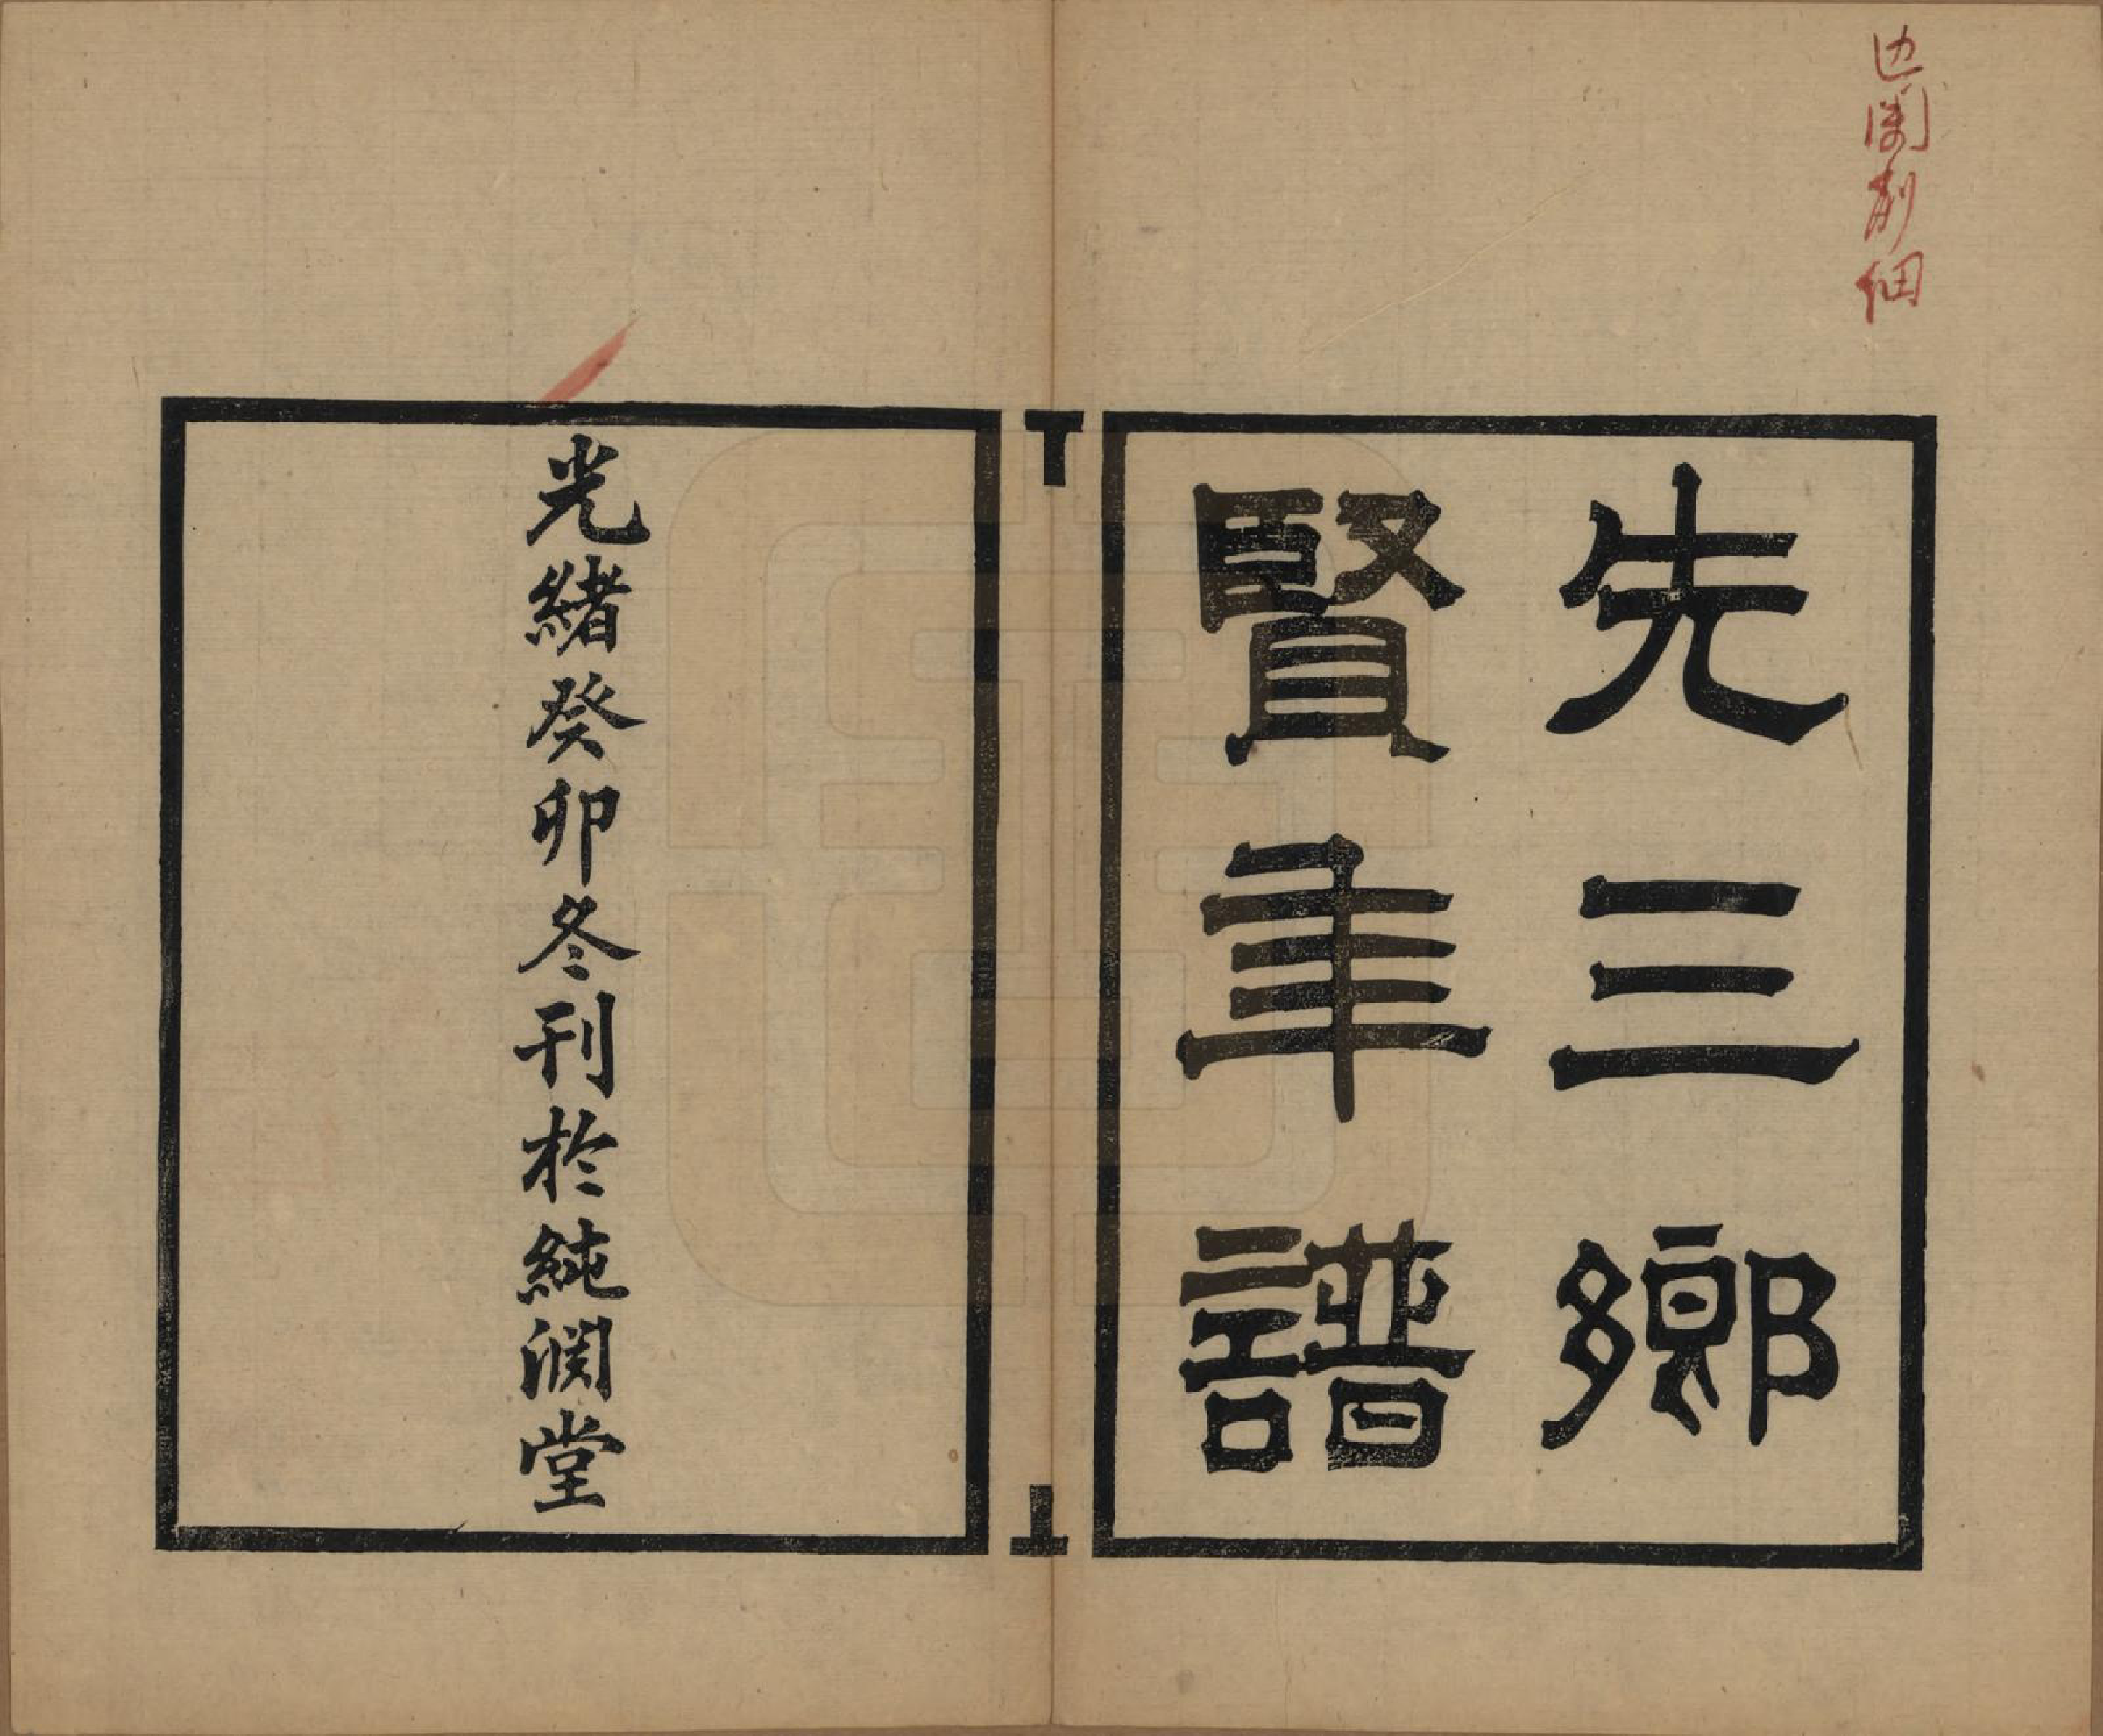 边阑削细
先三鄉
賢年譜
光緒癸卯冬刊於純渊堂